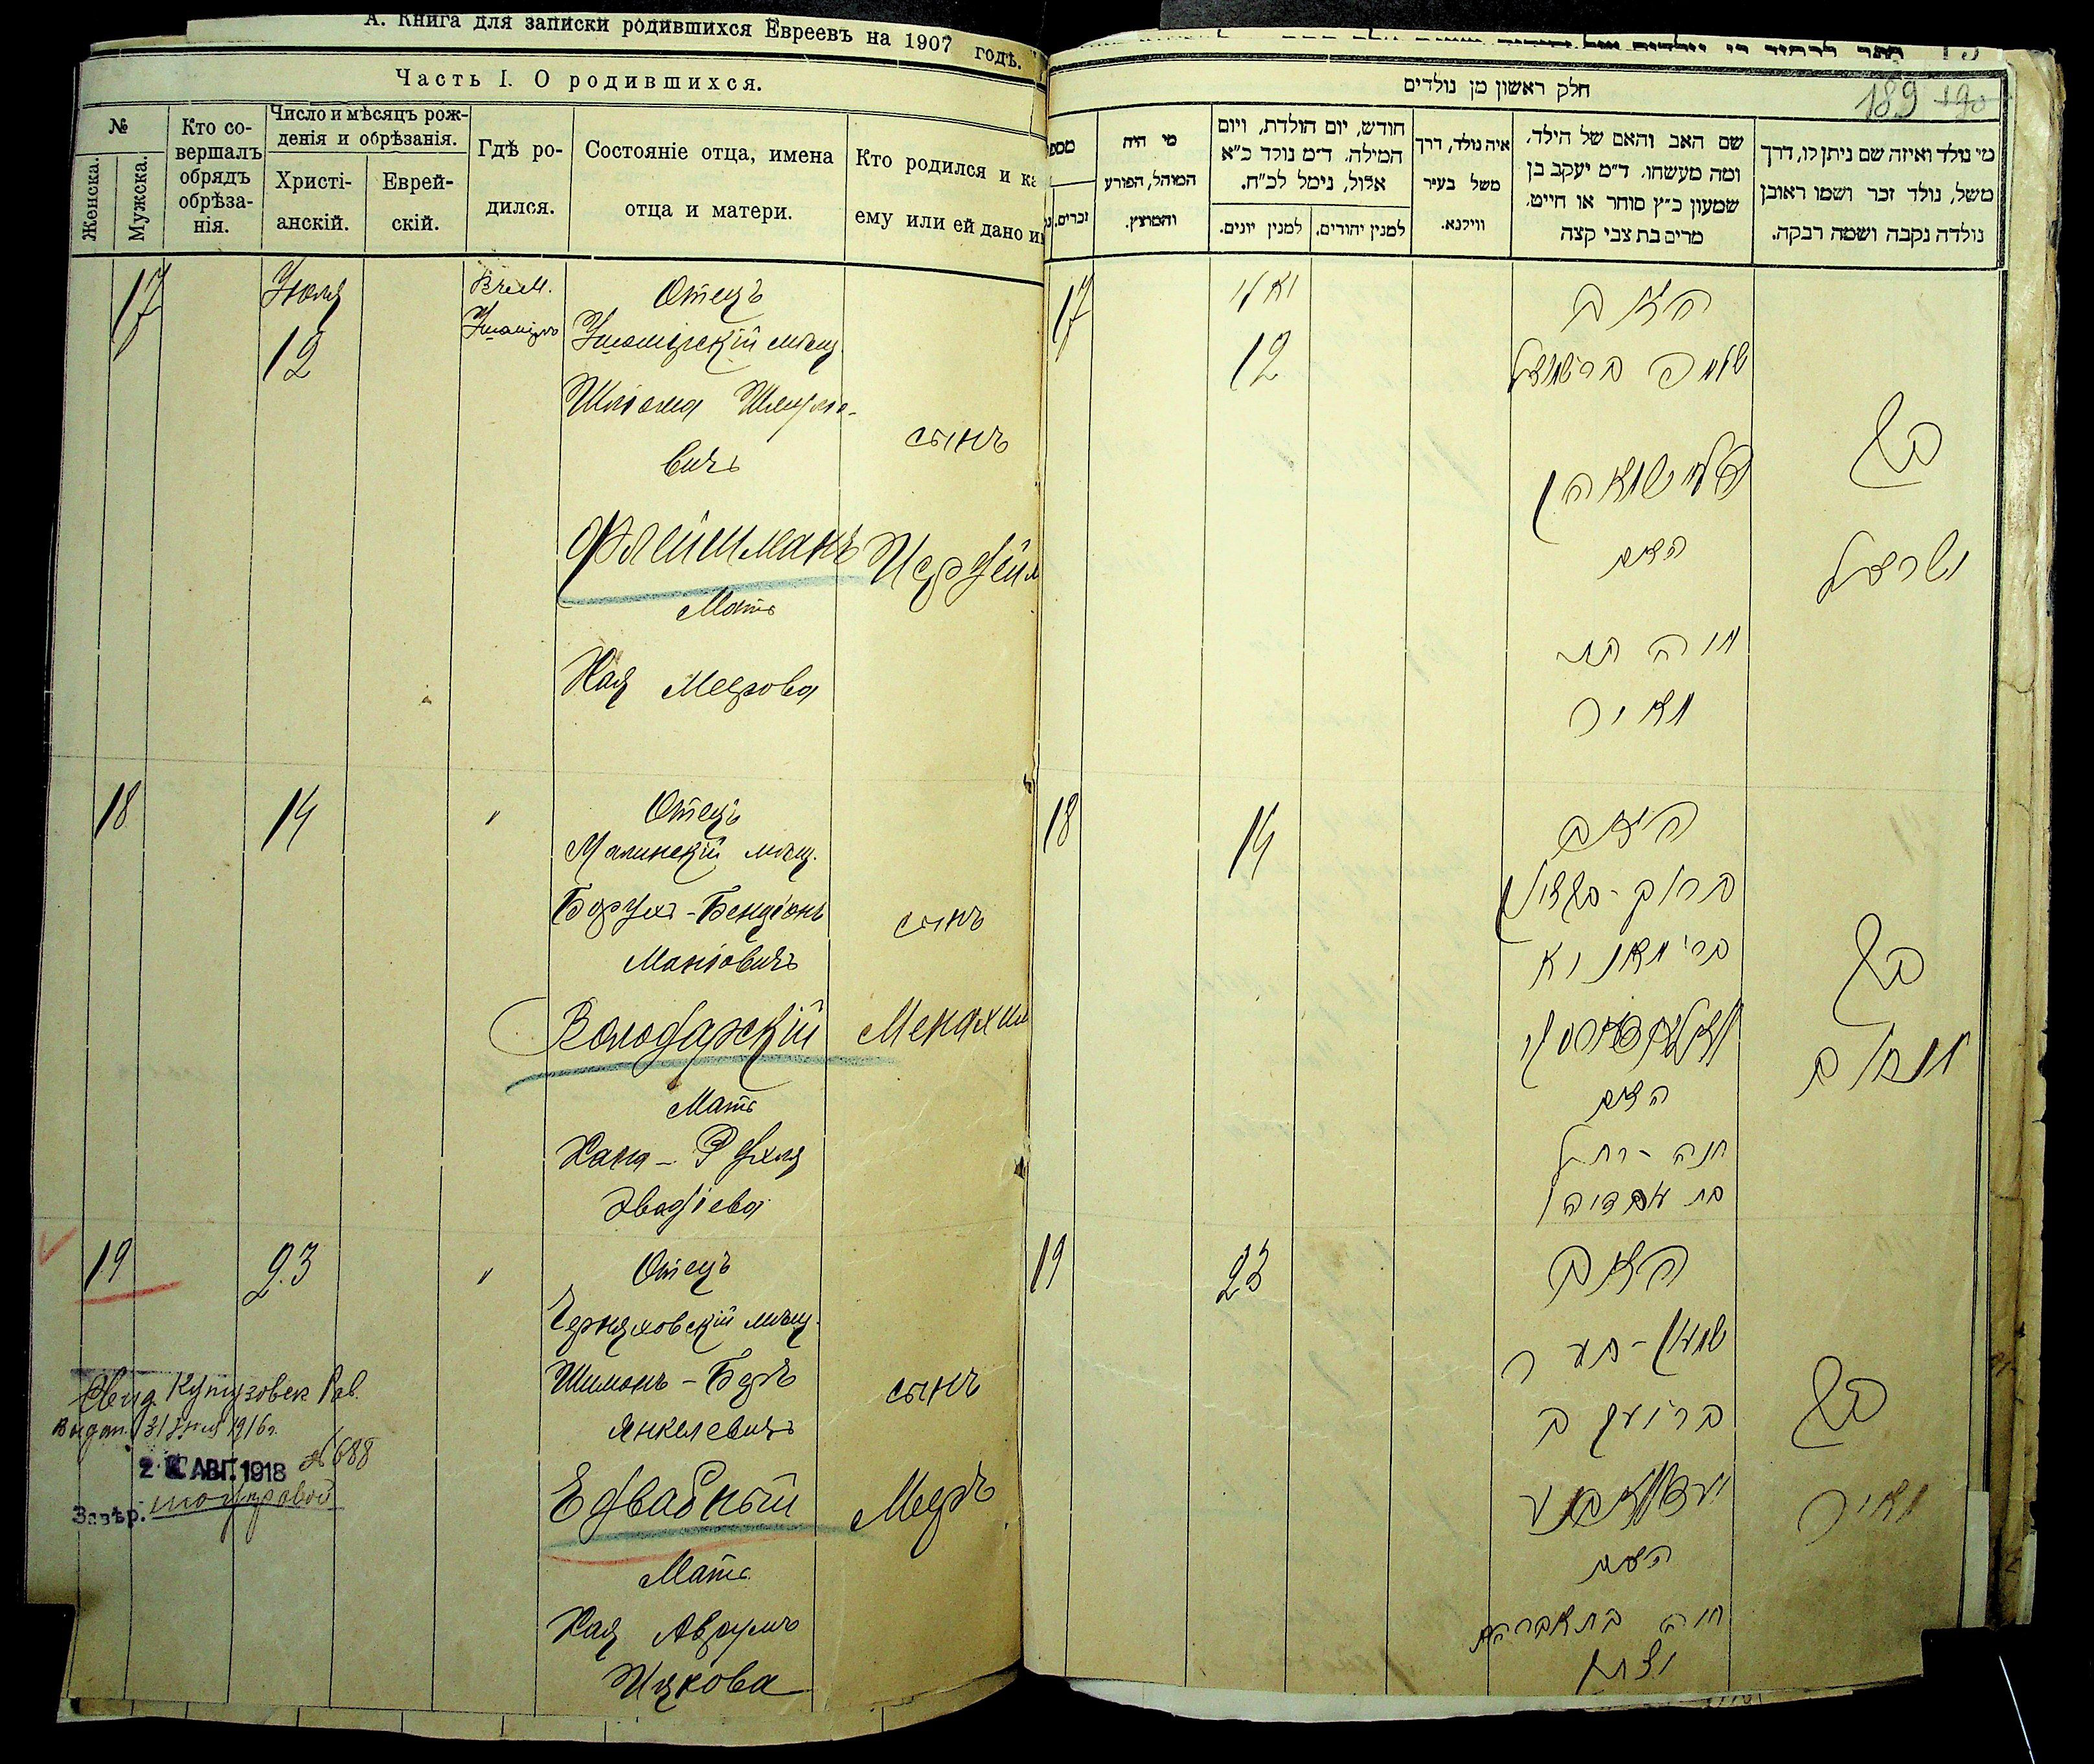 А. Книга для записки родившихся Евреевъ на 1907 годъ.
Часть I. О родившихся.
№
Женска.
Мужска.
Кто со-
вершалъ
обрядъ
обрѣза-
нія.
Число и мѣсяцъ рож-
денія и обрѣзанія.
Христі-
анскій.
Еврей-
скій.
Гдѣ ро-
дился.
Состояніе отца, имена
отца и матери.
Кто родился и ка
ему или ей дано им
17
Іюля
12
Отецъ
Ушомірскій мѣщ.
Шлома Шмуле-
вичъ
Флейшманъ
Мать
Хая Меерова
сынъ
18
14
"
Отецъ
Малинскій мѣщ.
Борухъ-Бенціонъ
Маніовичъ
Володарскій
Мать
Хана-Рухля
Овадіева
сынъ
Менахим
19
23
"
Отецъ
Черняховскій мѣщ.
Шимонъ-Беръ
Янкелевичъ
Едвабный
Мать
Хая Аврумъ
Ицкова
сынъ
Мееръ
Выдан. 31 1916 г.
№ 688
2 АВГ. 1918
Завѣр.
חלק ראשון מן נולדים
189 190
מספר
זכרים.
מי היה
המוהל, הפורע
והמוצץ.
חודש, יום הולדת, ויום
המילה. ד״מ נולד כ״א
אלול, נימל לכ״ח.
למנין יונים.
למנין יהודים.
איה נולד, דרך
משל בעיר
ווילנא.
שם האב והאם של הילד,
ומה מעשהו. ד״מ יעקב בן
שמעון כ״ץ סוחר או חייט,
מרים בת צבי קצה
מי נולד ואיזה שם ניתן לו, דרך
משל, נולד זכר ושמו ראובן
נולדה נקבה ושמה רבקה.
17
יולי
12
האב
שלמה בר שמואל
פליישמאן
האם
חיה בת
מאיר
בן
ישראל
18
14
האב
ברוך-בןציון
האם
חנה-רחל
בת עובדיה
בן
מנחם
19
23
האב
שמעון-בער
בר יעקב
האם
חיה בת אברהם
יצחק
בן
מאיר